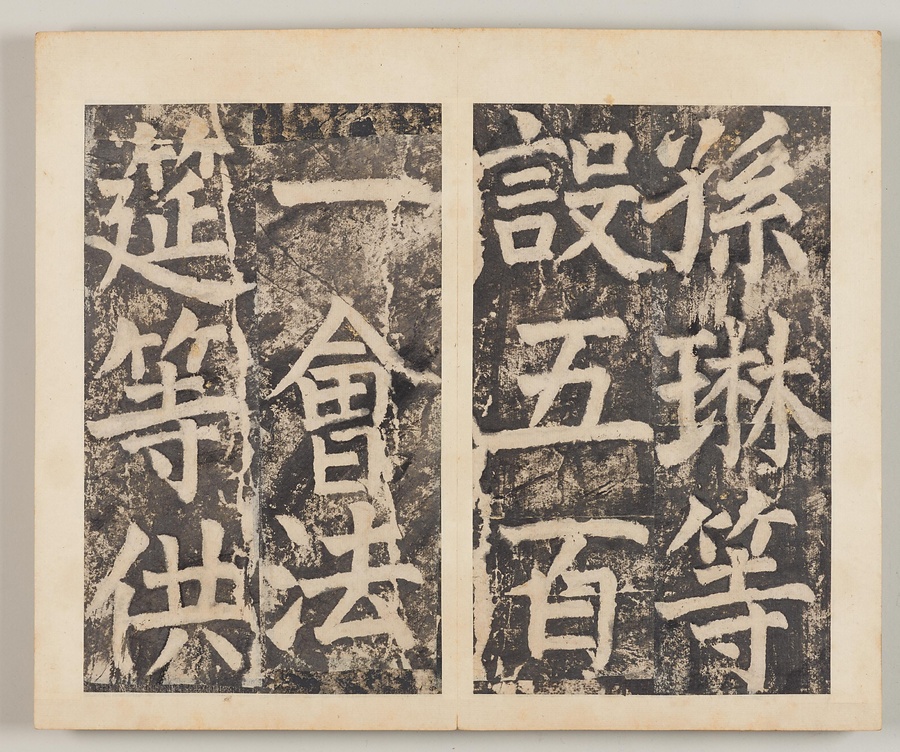 孫琳等
設五百
一會法
筵等供